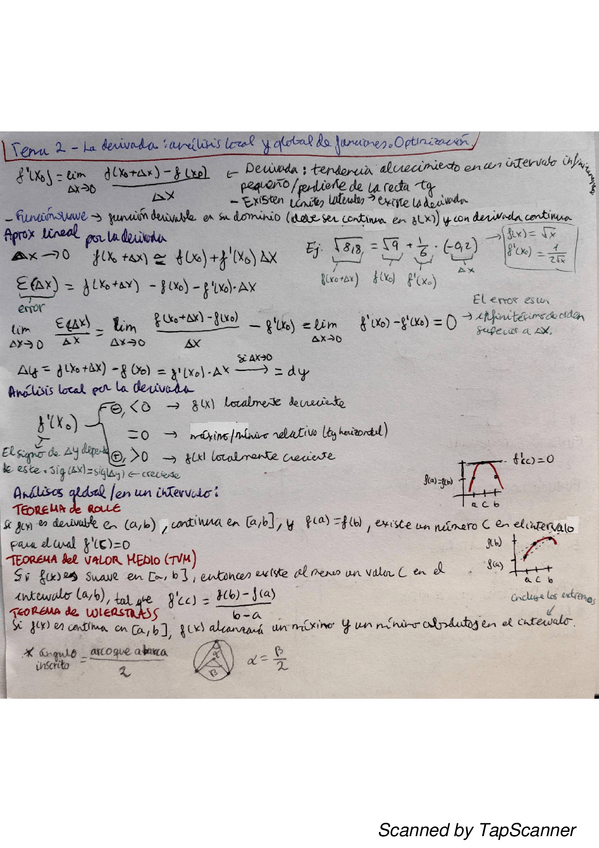 Tema 2 - La derivada: análisis local y global de funciones. Optimización
f'(x₀) = lim Δx→0 f(x₀+Δx) - f(x₀) / Δx ← Derivada: tendencia al crecimiento en un intervalo infinitamente
pequeño/pendiente de la recta tg
- Existen límites laterales → existe la derivada
- Función suave → función derivable en su dominio (debe ser continua en f(x)) y con derivada continua
Aprox lineal por la derivada
Δx → 0 f(x₀+Δx) ≃ f(x₀) + f'(x₀) Δx Ej: √8,8 = √9 + 1/6 · (-0,2) → f(x) = √x
f'(x₀) = 1/2√x
f(x₀+Δx) f(x₀) f'(x₀) Δx
E(Δx) = f(x₀+Δx) - f(x₀) - f'(x₀)·Δx
error
El error es un
→ infinitésimo de orden
superior a Δx.
lim Δx→0 E(Δx)/Δx = lim Δx→0 f(x₀+Δx) - f(x₀) / Δx - f'(x₀) = lim Δx→0 f'(x₀) - f'(x₀) = 0
Δy = f(x₀+Δx) - f(x₀) = f'(x₀)·Δx si Δx→0 → = dy
Análisis local por la derivada
f'(x₀) ⊖, < 0 → f(x) localmente decreciente
= 0 → máximo/mínimo relativo (tg horizontal)
⊕, > 0 → f(x) localmente creciente
El signo de Δy depende
de este. sig(Δx) = sig(Δy) ← creciente
f'(c) = 0
f(a)=f(b)
a c b
Análisis global/en un intervalo:
TEOREMA de ROLLE
Si f(x) es derivable en (a,b), continua en [a,b], y f(a) = f(b), existe un número C en el intervalo
para el cual f'(c) = 0
TEOREMA del VALOR MEDIO (TVM)
f(b)
f(a)
a c b
Si f(x) es suave en [a,b], entonces existe al menos un valor C en el
intervalo (a,b), tal que f'(c) = f(b) - f(a) / b - a
incluye los extremos
TEOREMA de WIERSTRASS
Si f(x) es continua en [a,b], f(x) alcanzará un máximo y un mínimo absolutos en el intervalo.
* ángulo inscrito = arco que abarca / 2 α β α = β/2
Scanned by TapScanner